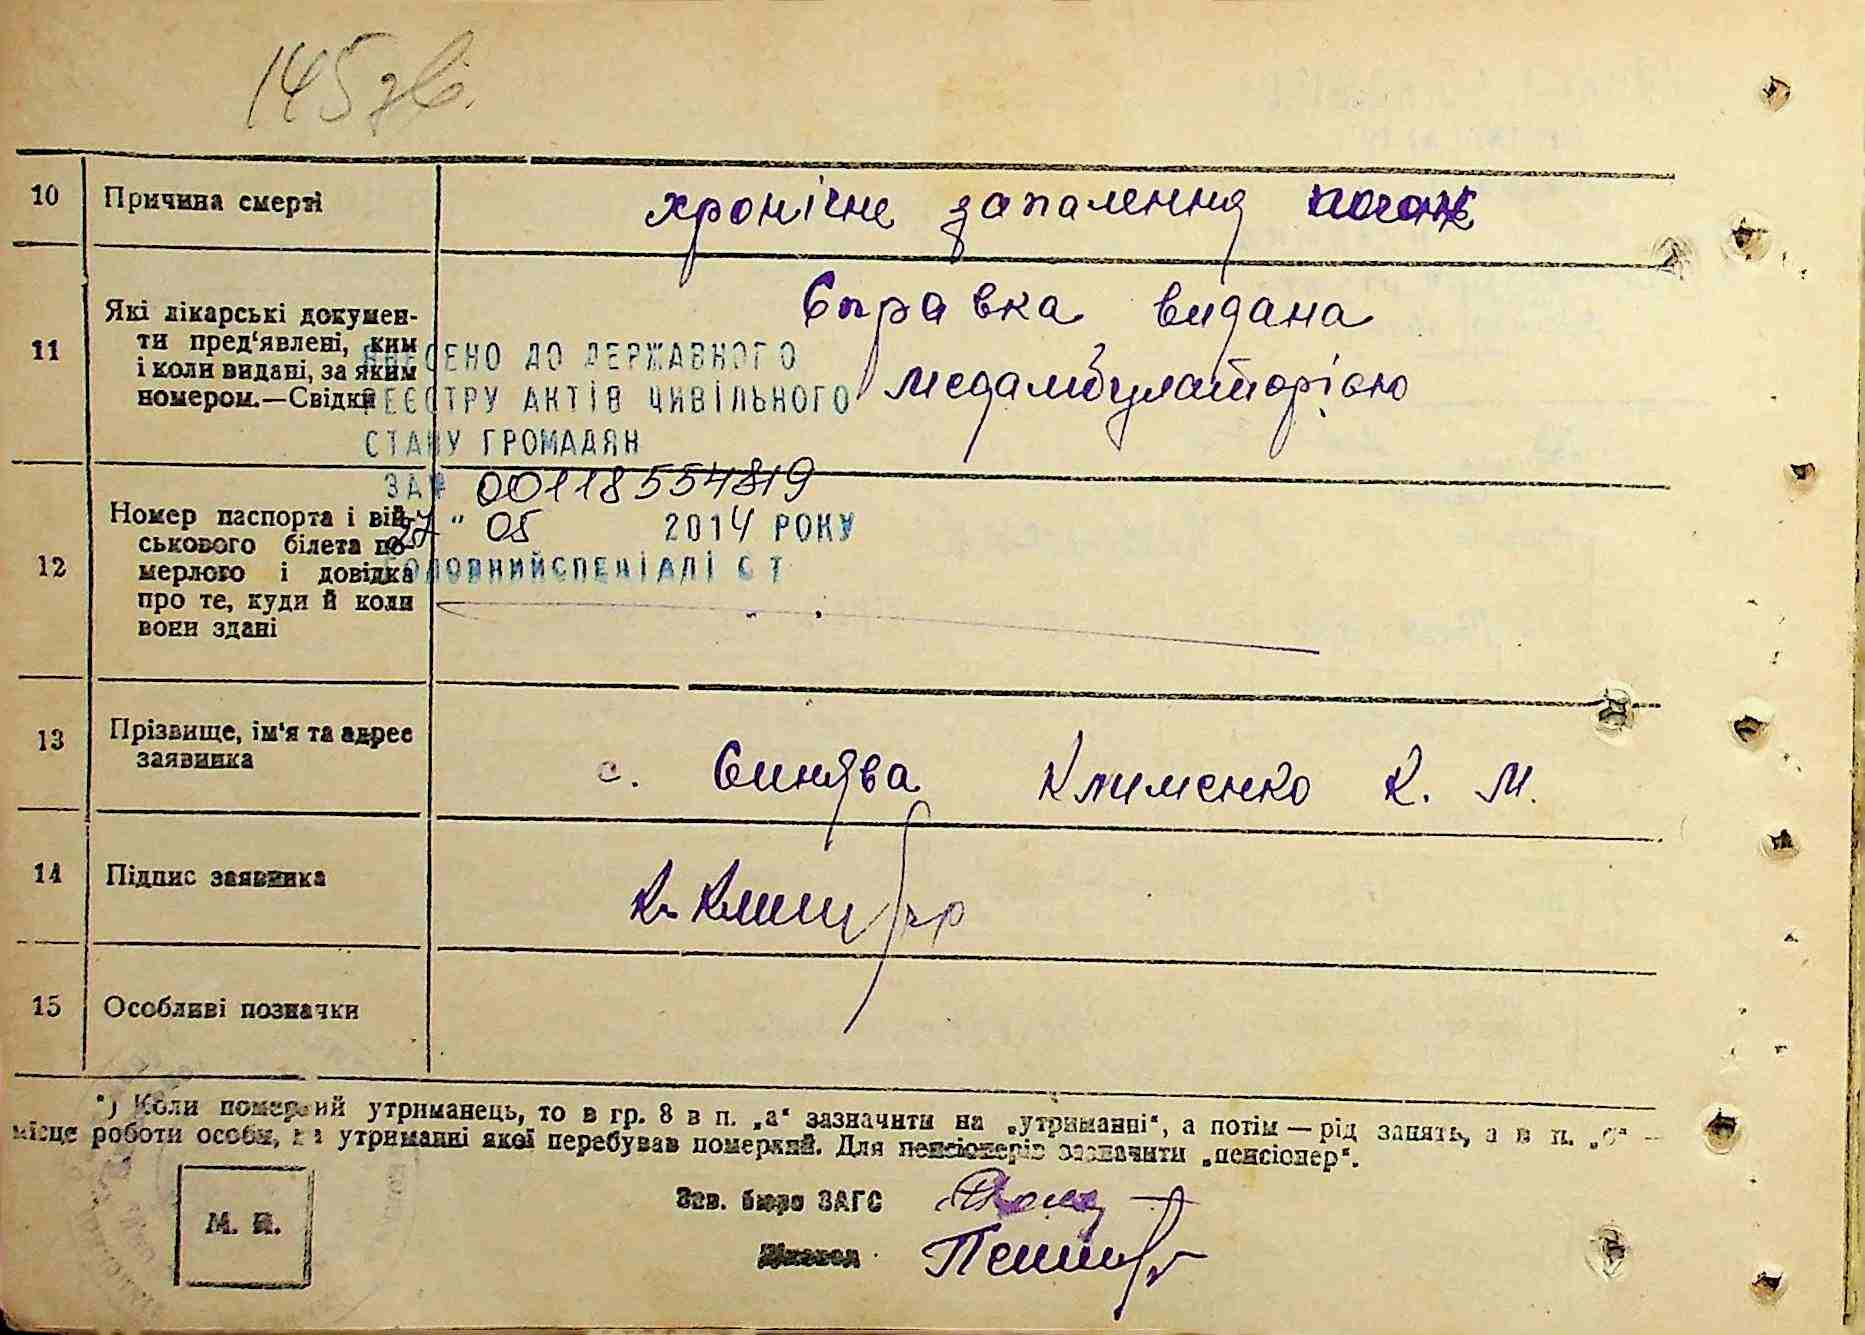 145 зв.
10 Причина смерті хронічне запалення
11 Які лікарські докумен-
ти пред'явлені, ким
і коли видані, за яким
номером.—Свідки
Справка видана
медамбулаторією
ВНЕСЕНО ДО ДЕРЖАВНОГО
РЕЄСТРУ АКТІВ ЦИВІЛЬНОГО
СТАНУ ГРОМАДЯН
ЗА № 00118554819
27 " 05 2014 РОКУ
ГОЛОВНИЙ СПЕЦІАЛІСТ
12 Номер паспорта і вій-
ськового білета по-
мерлого і довідка
про те, куди й коли
вони здані
13 Прізвище, ім'я та адрес
заявника
с. Синява Клименко К. М.
14 Підпис заявника К. Клим
15 Особливі позначки
*) Коли померлий утриманець, то в гр. 8 в п. „а“ зазначити на „утриманні“, а потім — рід занять, а в п. „б“ —
місце роботи особи, на утриманні якої перебував померлий. Для пенсіонерів зазначити „пенсіонер“.
Зав. бюро ЗАГС
М. П.
Діловод